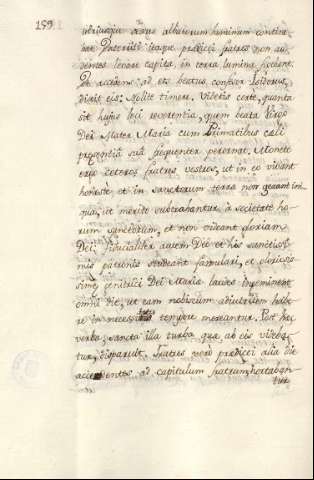 159
utriusque sexus albatorum luminum contine
bat. Pavefacti itaque predicti fratres non au
dentes levare capita, in terra lumina figebant.
Et accedens ad eos beatus confesor Isidorus,
dixit eis: Nolite timere. Videtis certe, quanta
sit hujus loci reverentia, quem beata Virgo
Dei Mater Maria cum Primatibus celi
presentia sua frequenter perornat. Monete
ergo ceteros fratres vestros, ut in eo vivant
honeste et in sanctorum terra non gerant ini
qua, ut merito subtrahantur a societate ho
rum sanctorum, et non videant gloriam
Dei; specialiter autem Deo et his sanctissi
mis patronis studeant famulari, et gloriosis
sime genitrici Dei Marie laudes
omni die, ut eam nobiscum adjutricem habe
re in necessitatis tempore mereantur. Post hec
verba, sancta illa turba que ab eis videba
tur, disparuit. Fratres vero predicti alia die
accedentes ad capitulum fratrum, hortaban
tur